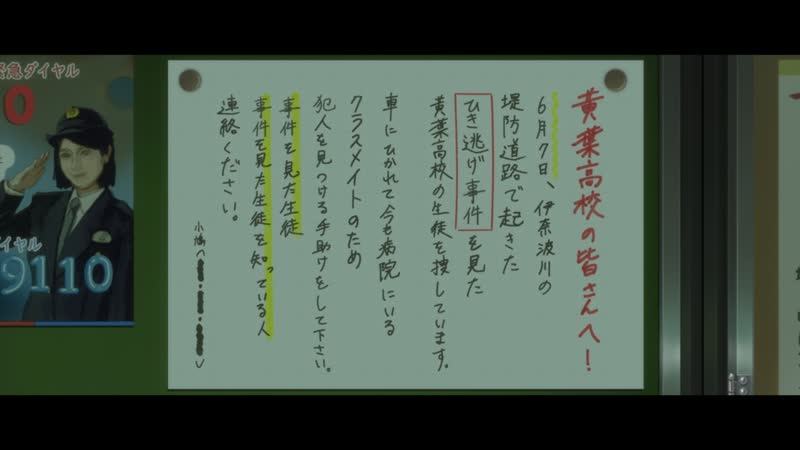 黄葉高校の皆さんへ!
6月7日、伊奈波川の
堤防道路で起きた
ひき逃げ事件を見た
黄葉高校の生徒を捜しています。
車にひかれて今も病院にいる
クラスメイトのため
犯人を見つける手助けをして下さい。
事件を見た生徒
事件を見た生徒を知っている人
連絡ください。
急ダイヤル
0
イヤル
9110